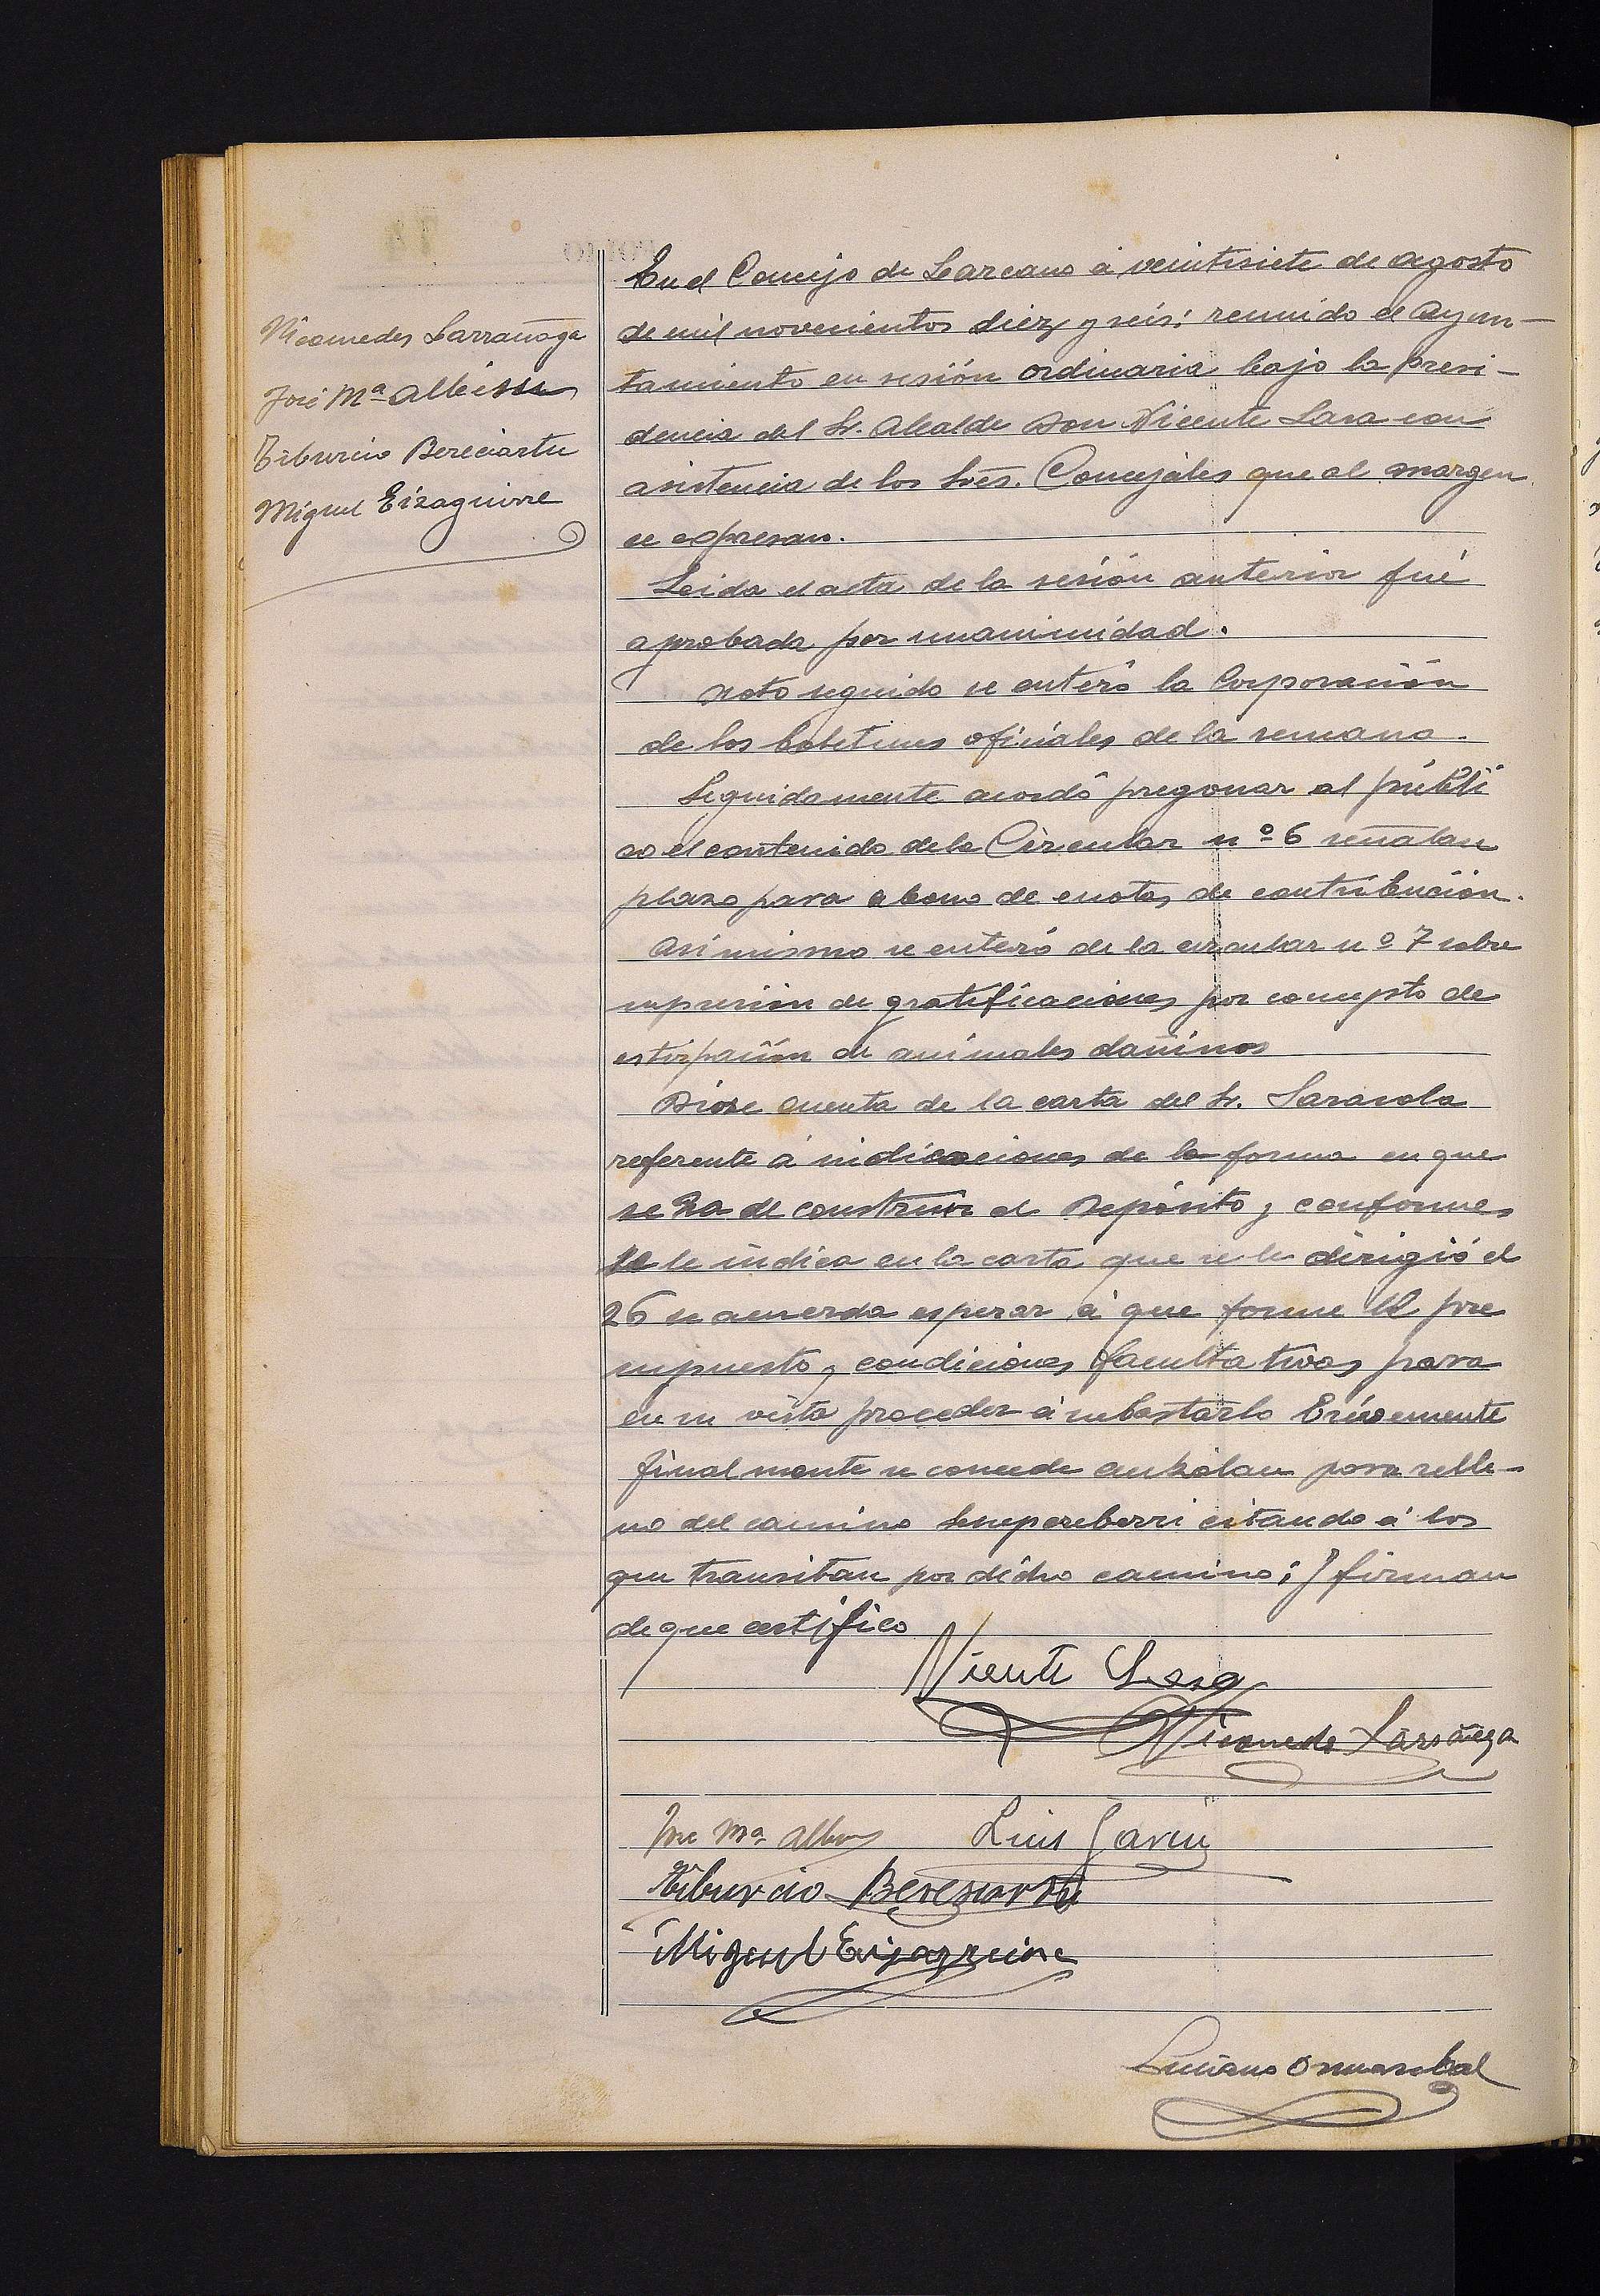 Nicomedes Larrañaga
José Mª Albisu
Tiburcio Bereciartu
Miguel Eizaguirre
En el Concejo de Lazcano á veintisiete de agosto
de mil novecientos diez y seis: reunido el Ayun-
tamiento en sesión ordinaria bajo la presi-
dencia del Sr. Alcalde Don Vicente Lasa con
asistencia de los Sres. Concejales que al margen
se expresan.
Leida el acta de la sesión anterior fué
aprobada por unanimidad.
Acto seguido se enteró la Corporación
de los boletines oficiales de la semana.
Seguidamente acordó pregonar al públi
co el contenido de la Circular nº 6 señalan
plazo para abono de cuotas de contribución.
Asimismo se enteró de la circular nº 7 sobre
supresión de gratificaciones por concepto de
estirpación de animales dañinos
Dióse cuenta de la carta del Sr. Sarasola
referente á indicaciones de la forma en que
se ha de construir el Depósito y conforme
se le indica en la carta que se le dirigió el
26 se acuerda esperar á que forme el pre
supuesto y condiciones facultativas para
en su vista proceder á subastarlo
finalmente se concede auzolan para relle-
no del camino citando á los
que transitan por dicho camino; y firman
de que certifico
Vicente Lasa
Nicomedes Larrañaga
Jose Mª Albisu Luis Garin
Tiburcio Bereciartu
Miguel Eizaguirre
Luciano